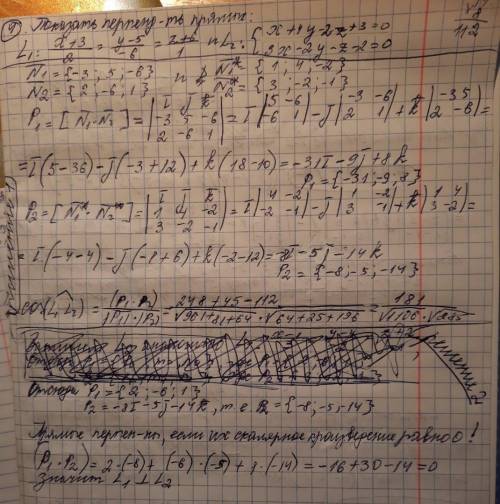 9) Показать перпенд-ть прямых:
L₁: (x+3)/2 = (y-5)/-6 = (z+6)/1 и L₂: { x+4y-2z+3=0
3x-2y-z-2=0
√1/112
N̄₁ = {-3; 5; -6} и N̄₁* = {1, 4, -2}
N̄₂ = {2, -6; 1} N̄₂* = {3, -2; -1}
P₁ = [N̄₁·N̄₂] = |i j k; -3 5 -6; 2 -6 1| = i |5 -6; -6 1| - j |-3 -6; 2 1| + k |-3 5; 2 -6| =
= i(5-36) - j(-3+12) + k(18-10) = -31i - 9j + 8k
P₁ = {-31; -9; 8}
P₂ = [N̄₁*·N̄₂*] = |i j k; 1 4 -2; 3 -2 -1| = i |4 -2; -2 -1| - j |1 -2; 3 -1| + k |1 4; 3 -2| =
= i(-4-4) - j(-1+6) + k(-2-12) = -8i - 5j - 14k
P₂ = {-8; -5; -14}
cos(L₁^L₂) = (P₁·P₂)/(|P₁|·|P₂|) = (248+45-112)/(√961+81+64 · √64+25+196) = 181/(√1106 · √285)
Отсюда P₁ = {2; -6; 1}
P₂ = -8i - 5j - 14k, т.е. P₂ = {-8; -5; -14}
решение 2
Прямые перпен-ны, если их скалярное произведение равно 0!
(P₁·P₂) = 2·(-8) + (-6)·(-5) + 1·(-14) = -16+30-14=0
Значит L₁ ⊥ L₂